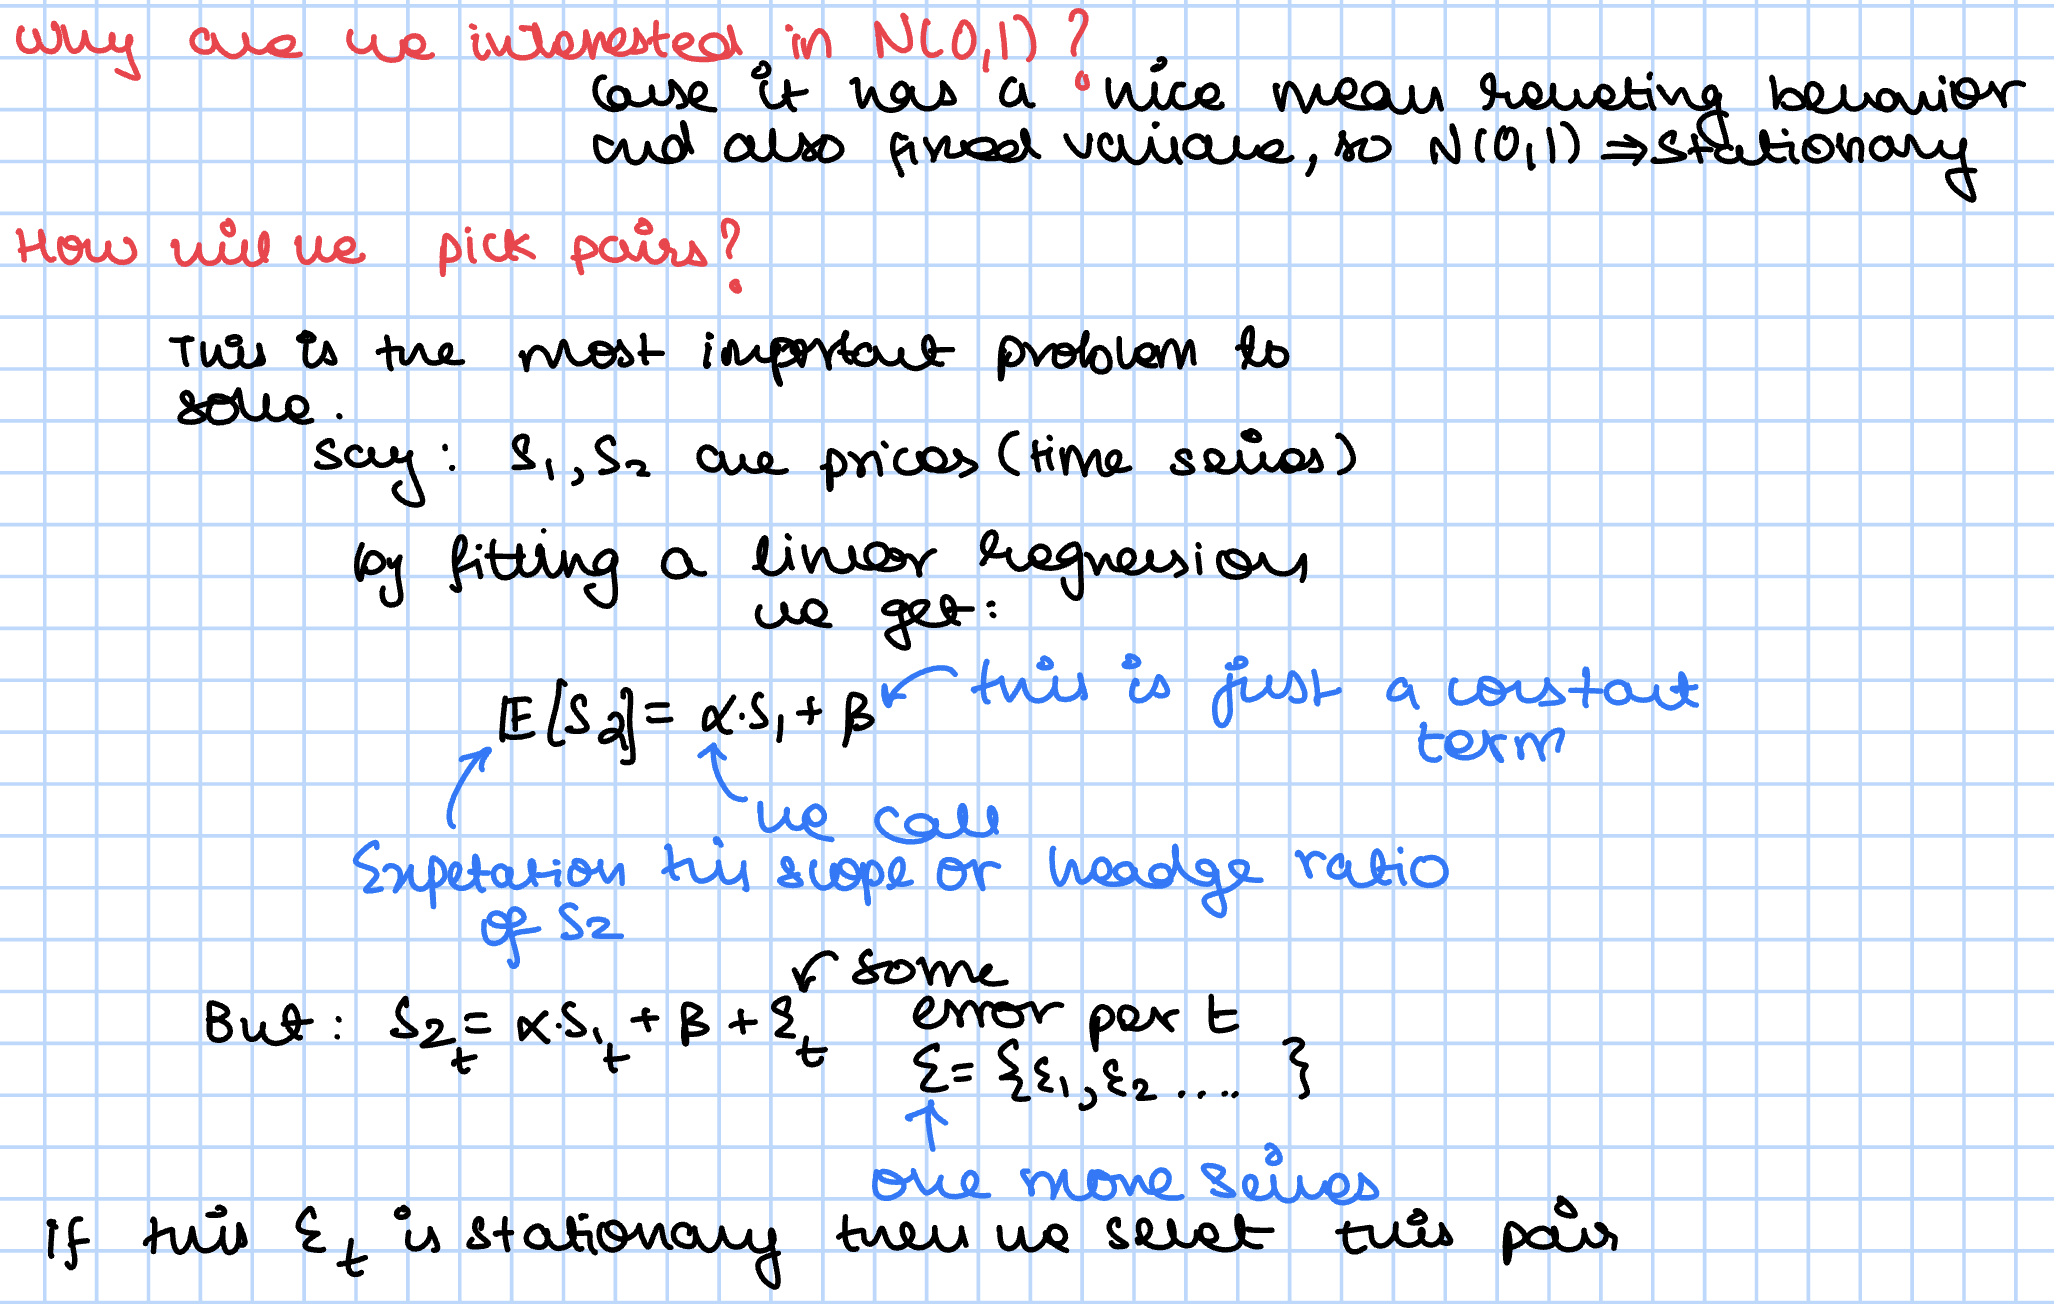 Why are we interested in N(0,1)?
cause it has a nice mean reverting behavior
and also fixed variance, so N(0,1) ⇒ stationary
How will we pick pairs?
This is the most important problem to
solve.
say: S₁, S₂ are prices (time series)
by fitting a linear regression
we get:
E[S₂] = α·S₁ + β ← this is just a constant
term
we call
Expetation this slope or headge ratio
of S₂
some
But: S₂ₜ = α·S₁ₜ + β + Ɛₜ error per t
Ɛ = {Ɛ₁, Ɛ₂ .... }
one more series
If this Ɛₜ is stationary then we select this pair